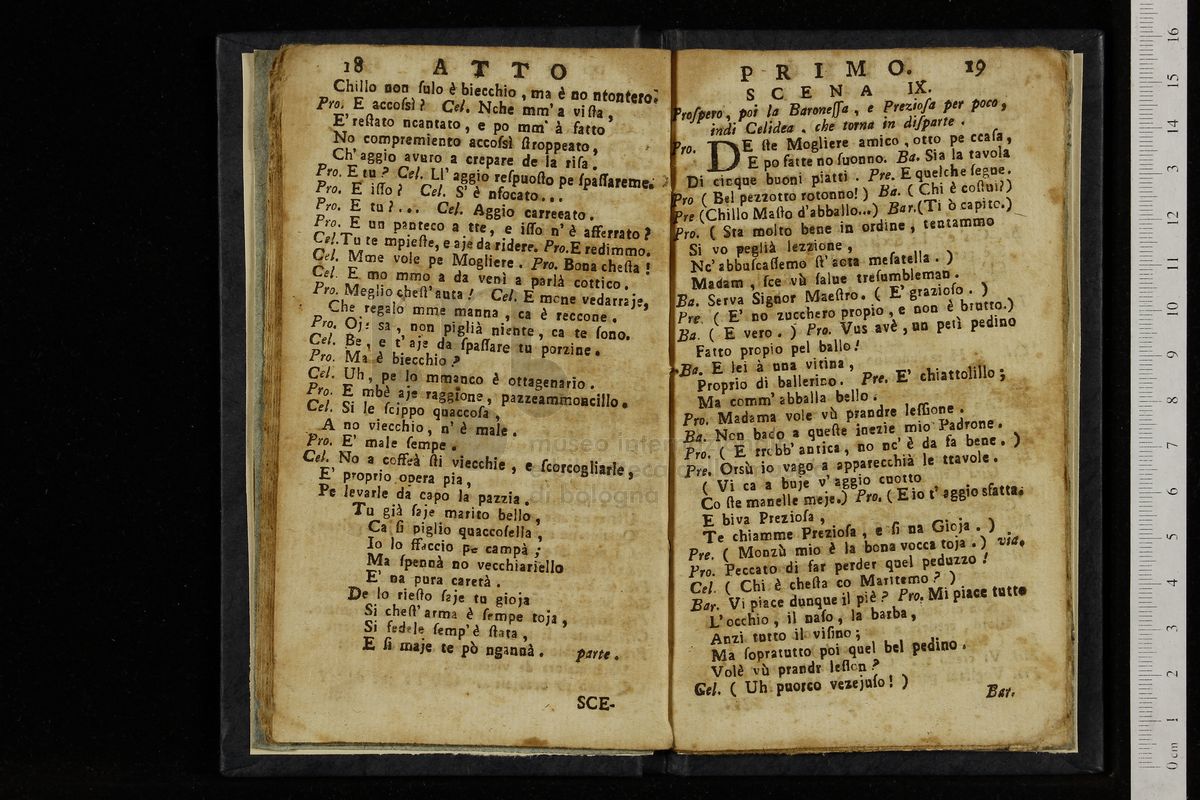 18 ATTO
Chillo non ſulo è biecchio, ma è no ntontero.
Pro. E accoſsì? Cel. Nche mm' a viſta,
E' reſtato ncantato, e po mm' à fatto
No compremiento accoſsì ſtroppeato,
Ch' aggio avuro a crepare de la riſa.
Pro. E tu? Cel. Ll' aggio reſpuoſto pe ſpaſſareme.
Pro. E iſſo? Cel. S' è nfocato...
Pro. E tu?... Cel. Aggio carreeato.
Pro. E un panteco a tte, e iſſo n' è afferrato?
Cel. Tu te mpieſte, e aje da ridere. Pro. E redimmo.
Cel. Mme vole pe Mogliere. Pro. Bona cheſta!
Cel. E mo mmo a da venì a parlà cottico.
Pro. Meglio cheſt' auta! Cel. E mone vedarraje,
Che regalo mme manna, ca è reccone.
Pro. Oj: sa, non piglià niente, ca te ſono.
Cel. Be, e t' aje da ſpaſſare tu porzine.
Pro. Ma è biecchio?
Cel. Uh, pe lo mmanco è ottagenario.
Pro. E mbè aje raggione, pazzeammoncillo.
Cel. Si le ſcippo quaccoſa,
A no viecchio, n' è male.
Pro. E' male ſempe.
Cel. No a coffeà ſti viecchie, e ſcorcogliarle,
E' proprio opera pia,
Pe levarle da capo la pazzia.
Tu già ſaje marito bello,
Ca ſi piglio quaccoſella,
Io lo ffaccio pe campà;
Ma ſpennà no vecchiariello
E' na pura carerà.
De lo rieſto ſaje tu gioja
Si cheſt' arma è ſempe toja,
Si fedele ſemp' è ſtata,
E ſi maje te pò ngannà. parte.
SCE-
PRIMO. 19
SCENA IX.
Proſpero, poi la Baroneſſa, e Prezioſa per poco,
indi Celidea. che torna in diſparte.
Pro. DE ſte Mogliere amico, otto pe ccaſa,
E po fatte no ſuonno. Ba. Sia la tavola
Di cinque buoni piatti. Pre. E quelche ſegne.
Pro (Bel pezzotto rotonno!) Ba. (Chi è coſtui?)
Pre (Chillo Maſto d'abballo...) Bar. (Ti ò capito.)
Pro. (Sta molto bene in ordine, tentammo
Si vo peglià lezzione,
Nc' abbuſcaſſemo ſt' aota meſatella.)
Madam, ſce vù ſalue treſumbleman.
Ba. Serva Signor Maeſtro. (E' grazioſo.)
Pre. (E' no zucchero propio, e non è brutto.)
Ba. (E vero.) Pro. Vus avè, un petì pedino
Fatto propio pel ballo!
Ba. E lei à una vitina,
Proprio di ballerino. Pre. E' chiattolillo;
Ma comm' abballa bello.
Pro. Madama vole vù prandre leſſione.
Ba. Non bado a queſte inezie mio Padrone.
Pro. (E trebb' antica, no nc' è da fa bene.)
Pre. Orsù io vago a apparecchià le ttavole.
(Vi ca a buje v' aggio cuotto
Co ſte manelle meje.) Pro. (E io t' aggio sfatta.
E biva Prezioſa,
Te chiamme Prezioſa, e ſi na Gioja.)
Pre. (Monzù mio è la bona vocca toja.) via.
Pro. Peccato di far perder quel peduzzo!
Cel. (Chi è cheſta co Maritemo?)
Bar. Vi piace dunque il piè? Pro. Mi piace tutto
L' occhio, il naſo, la barba,
Anzi tutto il viſino;
Ma ſopratutto poi quel bel pedino.
Volè vù prandr leſſon?
Cel. (Uh puorco vezejuſo!)
Bar.
museo
di bologna